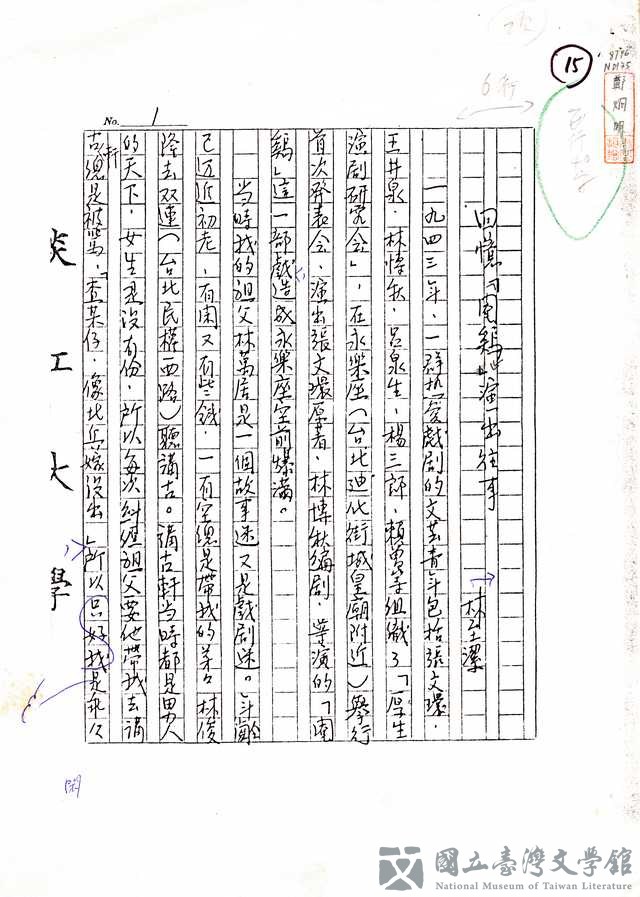 15
6行
No. 1
回憶「閹鷄」演出往事
林至潔
一九四三年,一群热愛戲剧的文芸青年包括張文環.
王井泉.林博秋.呂泉生.楊三郎.賴貴等組織了「厚生
演剧研究会」,在永樂座(台北迪化街城皇廟附近)舉行
首次発表会.演出張文環原著.林博秋編剧.導演的「閹
鷄」這一部戲造成永樂座空前爆滿。
當時我的祖父林萬居是一個故事迷又是戲剧迷。年齡
已近初老,有閑又有些錢.一有空總是帶我的弟々林俊
隆去双連(台北民權西路)聽講古。講古軒當時都是男人
的天下,女生是沒有份,所以每次糾纏祖父要他帶我去講
古軒總是被罵,「查某仔.像北兵嫁没出」所以只好我是永久
淡江大學
國立臺灣文學館
National Museum of Taiwan Literature